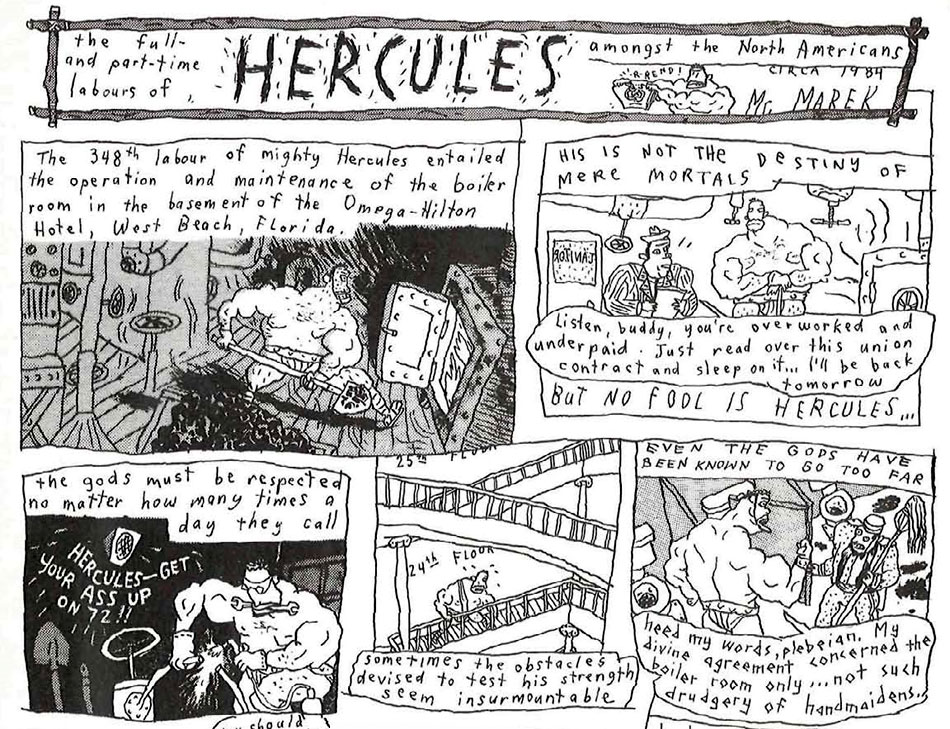 the full-
and part-time
labours of
HERCULES
amongst the North Americans
CIRCA 1984
R-REND!
Mc MAREK
The 348th labour of mighty Hercules entailed
the operation and maintenance of the boiler
room in the basement of the Omega-Hilton
Hotel, West Beach, Florida.
HIS IS NOT THE DESTINY OF
MERE MORTALS
JANITOR
Listen, buddy, you're overworked and
underpaid. Just read over this union
contract and sleep on it... I'll be back
tomorrow
BUT NO FOOL IS HERCULES...
the gods must be respected
no matter how many times a
day they call
HERCULES—GET
YOUR ASS UP
ON 72!!
25th FLOOR
24th FLOOR
sometimes the obstacles
devised to test his strength
seem insurmountable
EVEN THE GODS HAVE
BEEN KNOWN TO GO TOO FAR
heed my words, plebeian. My
divine agreement concerned the
boiler room only... not such
drudgery of handmaidens.
should